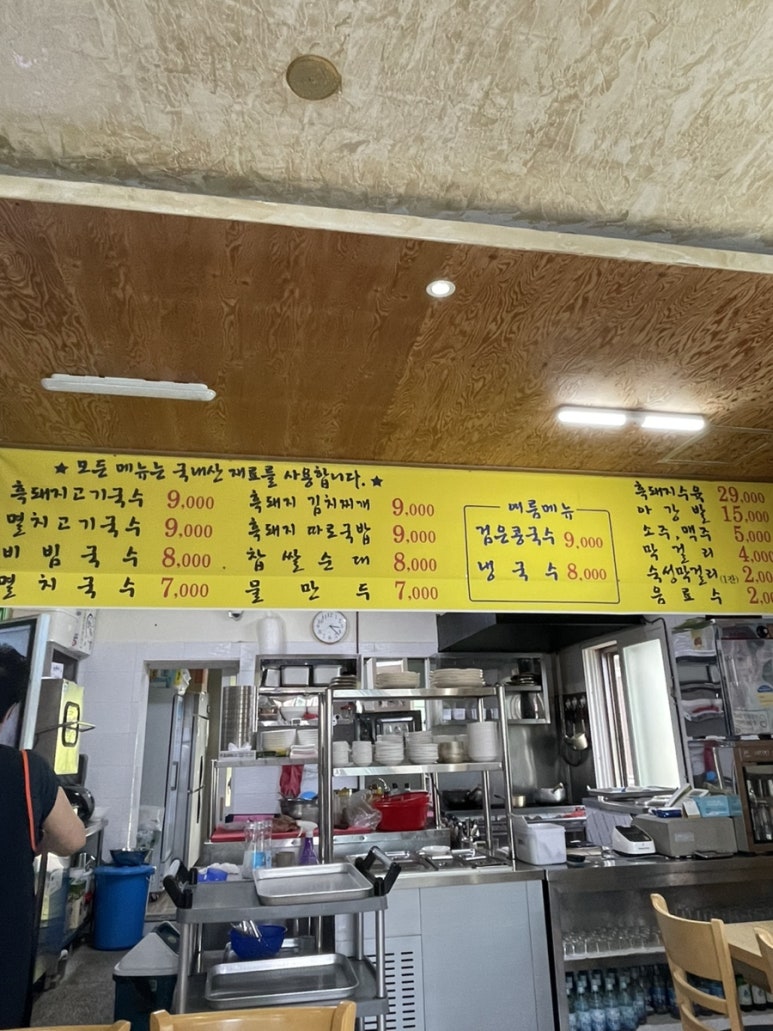 ★ 모든 메뉴는 국내산 재료를 사용합니다. ★
흑돼지고기국수 9,000
멸치고기국수 9,000
비빔국수 8,000
멸치국수 7,000
흑돼지 김치찌개 9,000
흑돼지 따로국밥 9,000
찹쌀순대 8,000
물만두 7,000
여름메뉴
검은콩국수 9,000
냉국수 8,000
흑돼지수육 29,000
아강발 15,000
소주,맥주 5,000
막걸리 4,000
숙성막걸리(1잔) 2,00
음료수 2,0